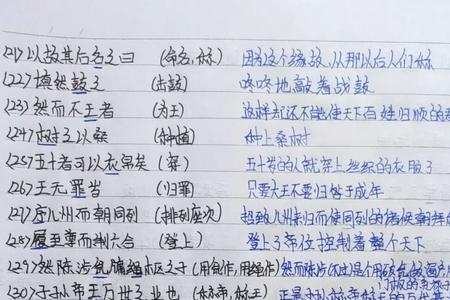 (21)以故其后名之曰 (命名,称) 因为这个缘故,从那以后人们称
(22)填然鼓之 (击鼓) 咚咚地敲着战鼓
(23)然而不王者 (为王) 这样却还不能使天下百姓归顺的君
(24)树之以桑 (种植) 种上桑树
(25)五十者可以衣帛矣 (穿) 五十岁的人就穿上丝织的衣服了
(26)王无罪岁 (归罪) 只要大王不要归咎于成年
(27)序八州而朝同列 (排列座次) 招致八州归而使同列的诸侯朝拜
(28)履至尊而制六合 (登上) 登上了帝位控制着整个天下
(29)然陈涉瓮牖绳枢之子 (用瓮作,用绳作) 然而陈涉
(30)子孙帝王万世之业也 (称帝,称王) 子孙称帝称王